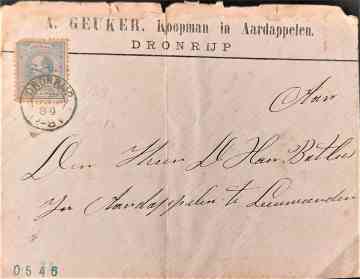 A. GEUKER, Koopman in Aardappelen.
DRONRIJP
DRONRIJP
Aan
Den Heer D Han
In Aardappelen te Leeuwarden
0546